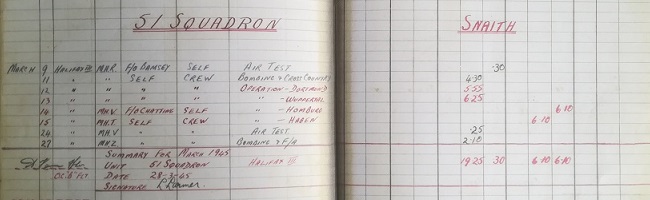 51 SQUADRON SNAITH
MARCH 9 HALIFAX III MH.R. F/O RAMSEY SELF AIR TEST ·30
11 " " SELF CREW BOMBING & CROSS COUNTRY 4·30
12 " " " " OPERATION - DORTMUND 5·55
13 " " " " " - WUPPERTAL 6·25
14 " MH.V F/O CHATTING SELF " - HOMBURG 6·10
15 " MH.T. SELF CREW " - HAGEN 6·10
24 " MH.V " " AIR TEST ·25
27 " MH.Z " " BOMBING & F/A 2·10
SUMMARY FOR MARCH 1945 HALIFAX III 19·25 ·30 6·10 6·10
UNIT 51 SQUADRON
OC "B" FLT DATE 28-3-45
SIGNATURE